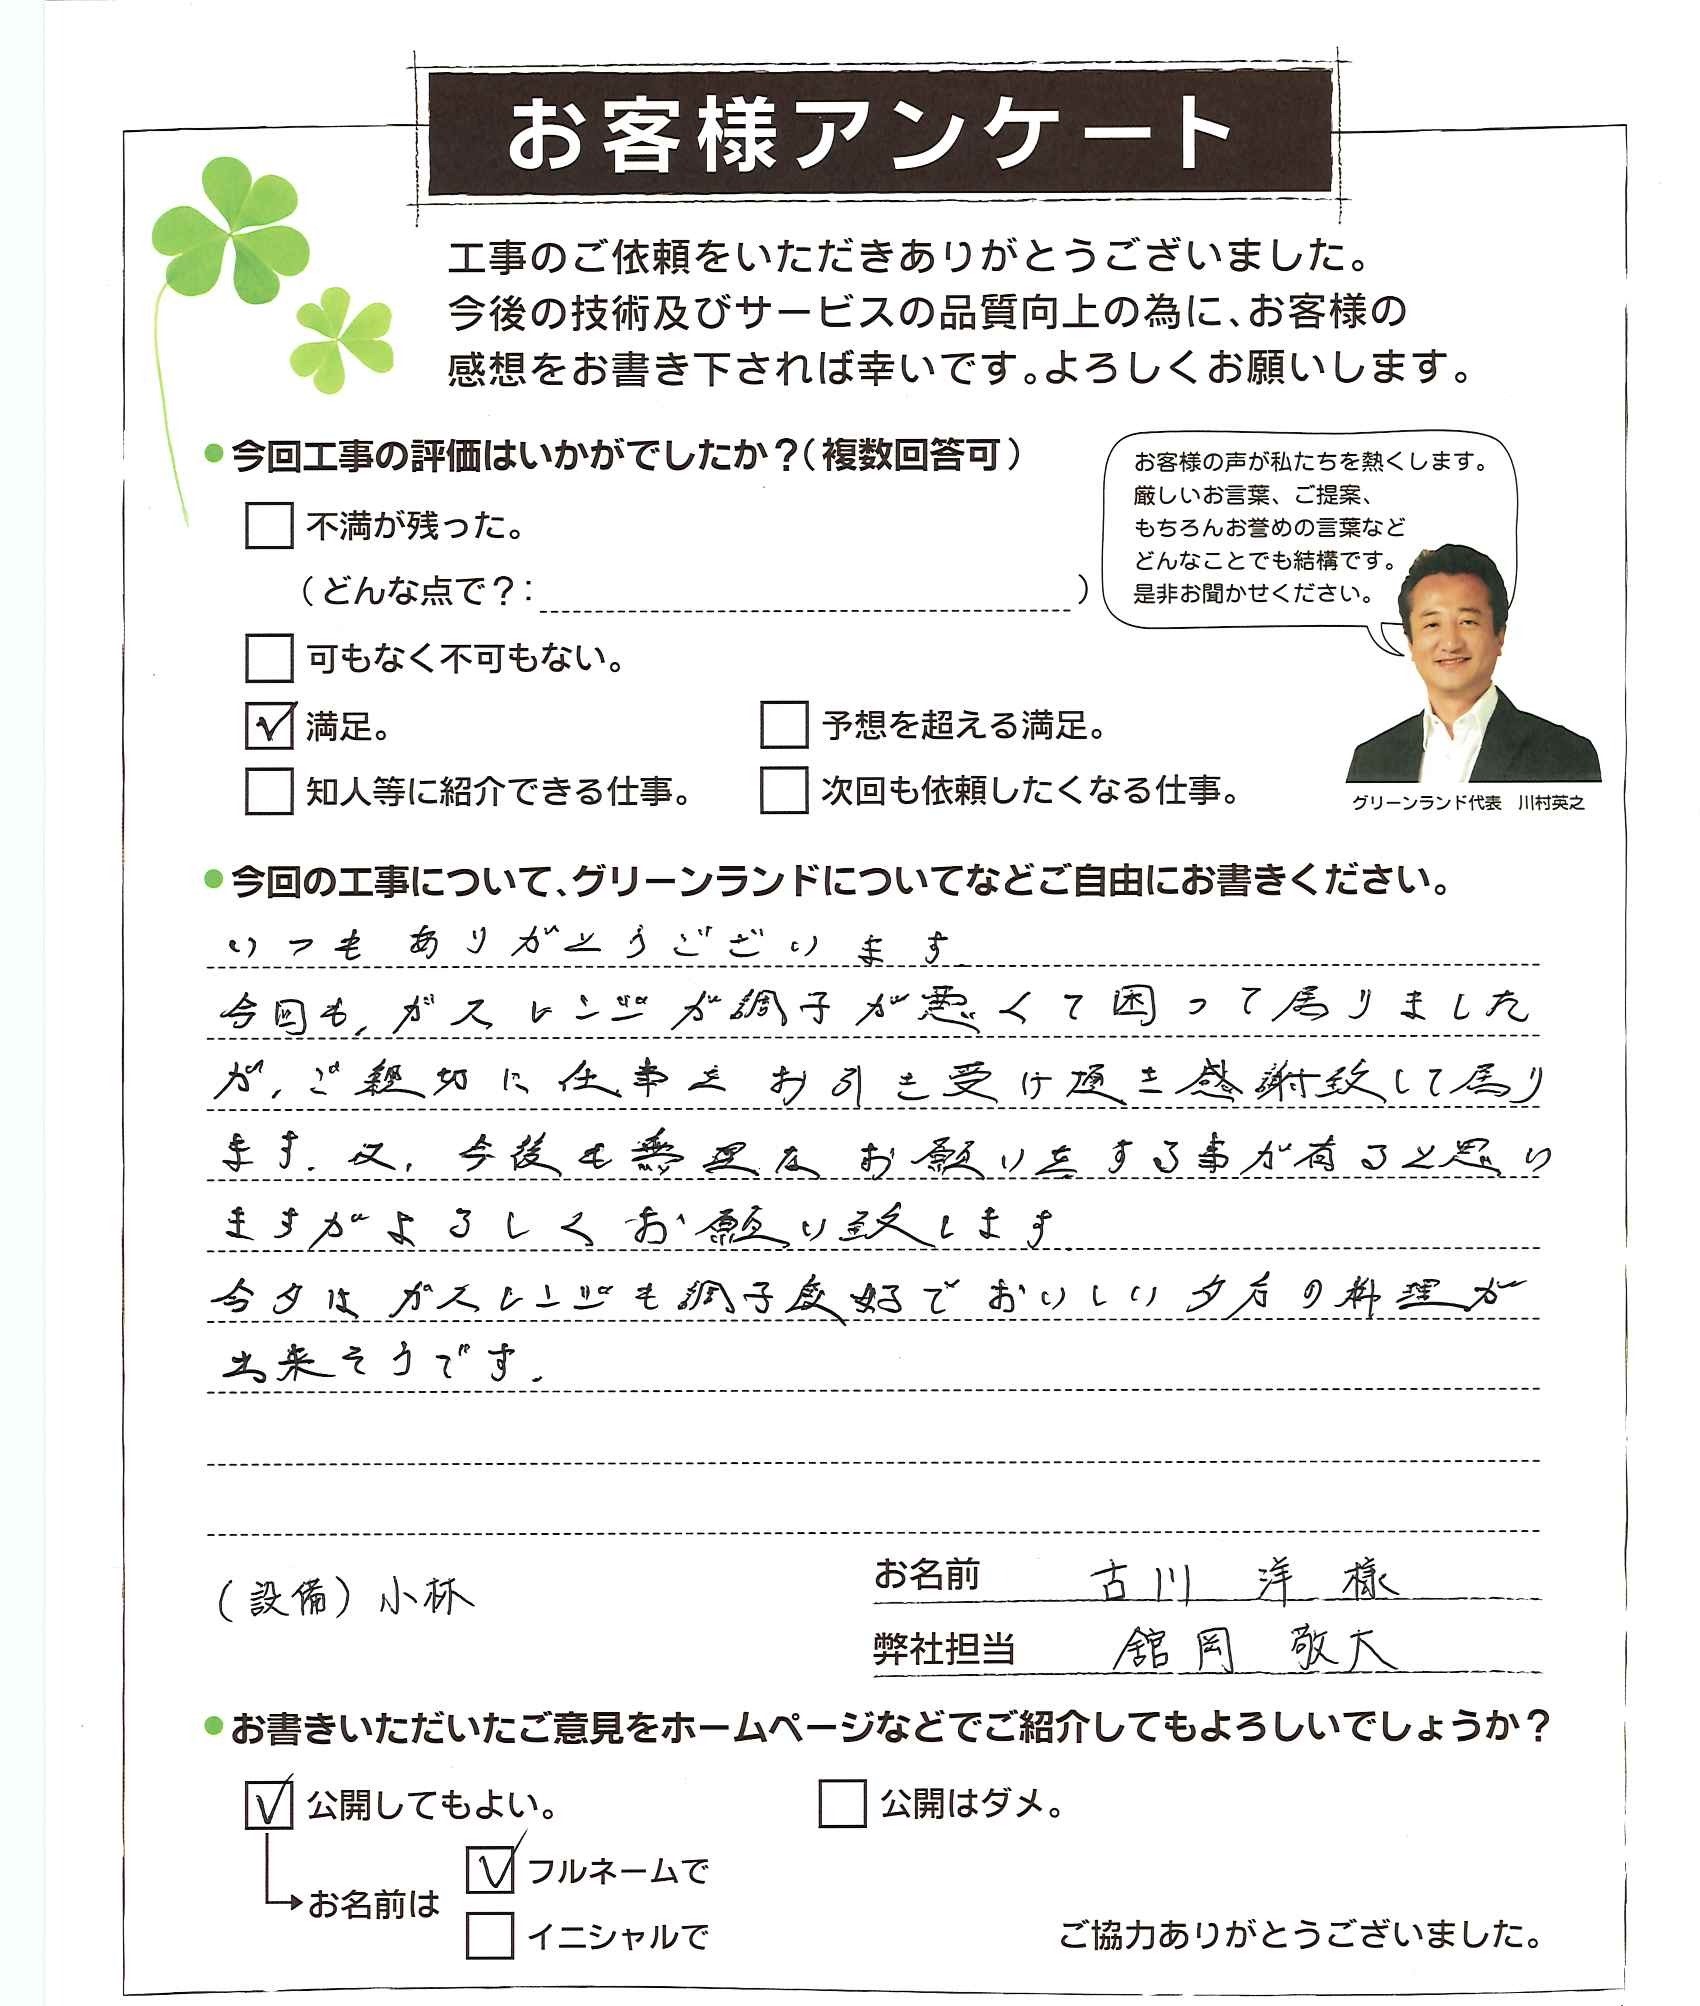 お客様アンケート
工事のご依頼をいただきありがとうございました。
今後の技術及びサービスの品質向上の為に、お客様の
感想をお書き下されば幸いです。よろしくお願いします。
今回工事の評価はいかがでしたか？（複数回答可）
不満が残った。
（どんな点で？：　）
可もなく不可もない。
満足。
予想を超える満足。
知人等に紹介できる仕事。
次回も依頼したくなる仕事。
お客様の声が私たちを熱くします。
厳しいお言葉、ご提案、
もちろんお誉めの言葉など
どんなことでも結構です。
是非お聞かせください。
グリーンランド代表　川村英之
今回の工事について、グリーンランドについてなどご自由にお書きください。
いつもありがとうございます
今回も、ガスレンジが調子が悪くて困って居りました
が、ご親切に仕事をお引き受け頂き感謝致して居り
ます。又、今後も無理なお願いをする事が有ると思い
ますがよろしくお願い致します
今夕はガスレンジも調子良好でおいしい夕食の料理が
出来そうです。
（設備）小林
お名前　古川　洋　様
弊社担当　舘岡　敬大
お書きいただいたご意見をホームページなどでご紹介してもよろしいでしょうか？
公開してもよい。
公開はダメ。
お名前は
フルネームで
イニシャルで
ご協力ありがとうございました。